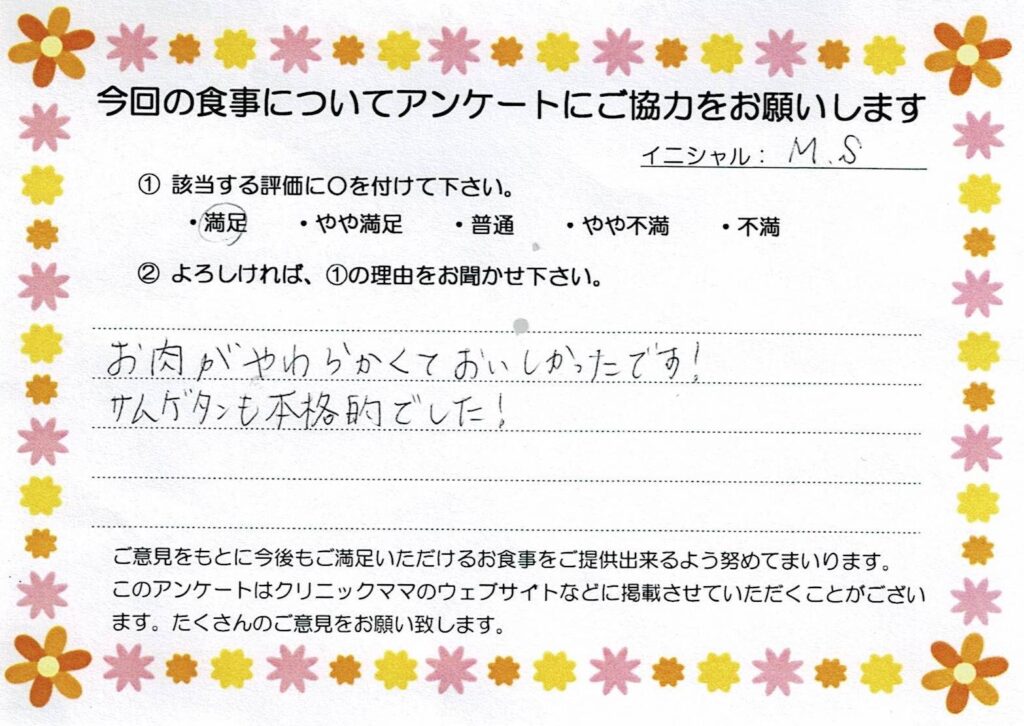 今回の食事についてアンケートにご協力をお願いします
イニシャル： M.S
① 該当する評価に〇を付けて下さい。
・満足 ・やや満足 ・普通 ・やや不満 ・不満
② よろしければ、①の理由をお聞かせ下さい。
お肉がやわらかくておいしかったです！
サムゲタンも本格的でした！
ご意見をもとに今後もご満足いただけるお食事をご提供出来るよう努めてまいります。
このアンケートはクリニックママのウェブサイトなどに掲載させていただくことがござい
ます。たくさんのご意見をお願い致します。